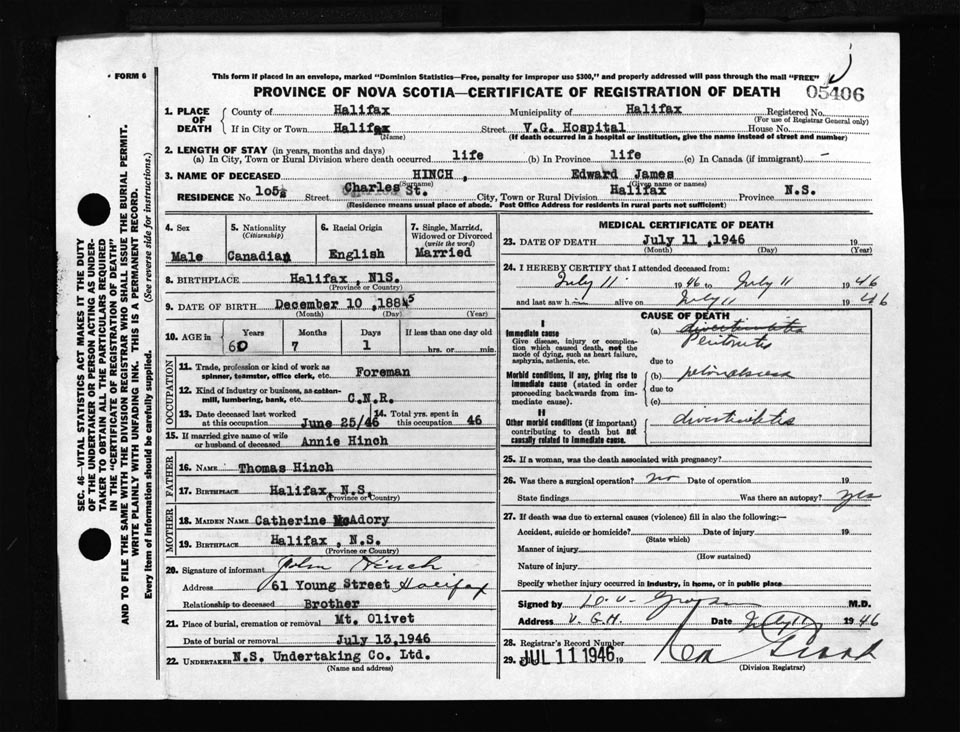 FORM 6
This form if placed in an envelope, marked "Dominion Statistics—Free, penalty for improper use $300," and properly addressed will pass through the mail "FREE"
PROVINCE OF NOVA SCOTIA—CERTIFICATE OF REGISTRATION OF DEATH
05406
1. PLACE OF DEATH
County of Halifax Municipality of Halifax Registered No.
(For use of Registrar General only)
If in City or Town Halifax Street V.G. Hospital House No.
(Name) (If death occurred in a hospital or institution, give the name instead of street and number)
2. LENGTH OF STAY (in years, months and days)
(a) In City, Town or Rural Division where death occurred life (b) In Province life (c) In Canada (if immigrant) -
3. NAME OF DECEASED HINCH, Edward James
(Surname) (Given name or names)
RESIDENCE No. 105½ Street Charles St. City, Town or Rural Division Halifax Province N.S.
(Residence means usual place of abode. Post Office Address for residents in rural parts not sufficient)
4. Sex
Male
5. Nationality
(Citizenship)
Canadian
6. Racial Origin
English
7. Single, Married, Widowed or Divorced
(write the word)
Married
8. BIRTHPLACE Halifax, N1S.
(Province or Country)
9. DATE OF BIRTH December 10, 1885
(Month) (Day) (Year)
10. AGE in
Years Months Days If less than one day old
60 7 1 hrs. or min.
OCCUPATION
11. Trade, profession or kind of work as spinner, teamster, office clerk, etc. Foreman
12. Kind of industry or business, as cotton-mill, lumbering, bank, etc. C.N.R.
13. Date deceased last worked at this occupation June 25/46
14. Total yrs. spent in this occupation 46
15. If married give name of wife or husband of deceased Annie Hinch
FATHER
16. NAME Thomas Hinch
17. BIRTHPLACE Halifax, N.S.
(Province or Country)
MOTHER
18. MAIDEN NAME Catherine McAdory
19. BIRTHPLACE Halifax, N.S.
(Province or Country)
20. Signature of informant John Hinch
Address 61 Young Street Halifax
Relationship to deceased Brother
21. Place of burial, cremation or removal Mt. Olivet
Date of burial or removal July 13, 1946
22. UNDERTAKER N.S. Undertaking Co. Ltd.
(Name and address)
MEDICAL CERTIFICATE OF DEATH
23. DATE OF DEATH July 11, 1946 19
(Month) (Day) (Year)
24. I HEREBY CERTIFY that I attended deceased from:
July 11 1946 to July 11 1946
and last saw him alive on July 11 1946
CAUSE OF DEATH
I
Immediate cause
Give disease, injury or complication which caused death, not the mode of dying, such as heart failure, asphyxia, asthenia, etc.
(a) diverticulitis
Peritonitis
due to
Morbid conditions, if any, giving rise to immediate cause (stated in order proceeding backwards from immediate cause).
(b) pelvic abscess
due to
(c)
II
Other morbid conditions (if important) contributing to death but not causally related to immediate cause.
diverticulitis
25. If a woman, was the death associated with pregnancy?
26. Was there a surgical operation? no Date of operation 19
State findings Was there an autopsy? yes
27. If death was due to external causes (violence) fill in also the following:—
Accident, suicide or homicide? Date of injury 19
(State which)
Manner of injury
(How sustained)
Nature of injury
Specify whether injury occurred in industry, in home, or in public place
Signed by M.D.
Address V.G.H. Date July 11 1946
28. Registrar's Record Number
29. JUL 11 1946 19
(Division Registrar)
SEC. 46—VITAL STATISTICS ACT MAKES IT THE DUTY
OF THE UNDERTAKER OR PERSON ACTING AS UNDER-
TAKER TO OBTAIN ALL THE PARTICULARS REQUIRED
IN THE "CERTIFICATE OF REGISTRATION OF DEATH"
AND TO FILE THE SAME WITH THE DIVISION REGISTRAR WHO SHALL ISSUE THE BURIAL PERMIT.
WRITE PLAINLY WITH UNFADING INK. THIS IS A PERMANENT RECORD.
Every item of information should be carefully supplied. (See reverse side for instructions.)